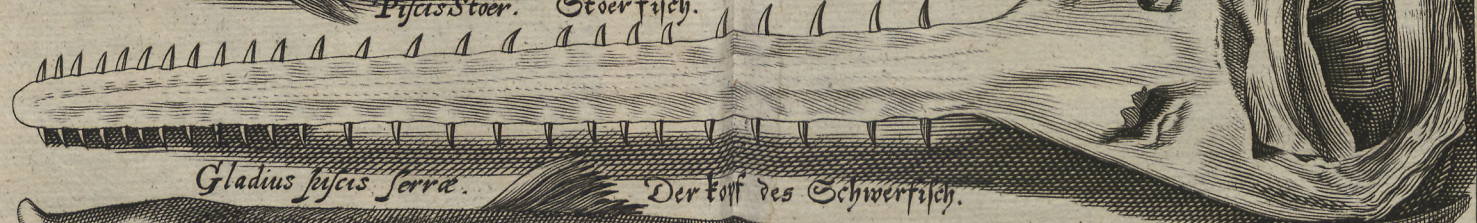 Piſcis Stoer. Stoerfiſch.
Gladius piſcis ſerræ. Der kopf des Schwerfiſch.